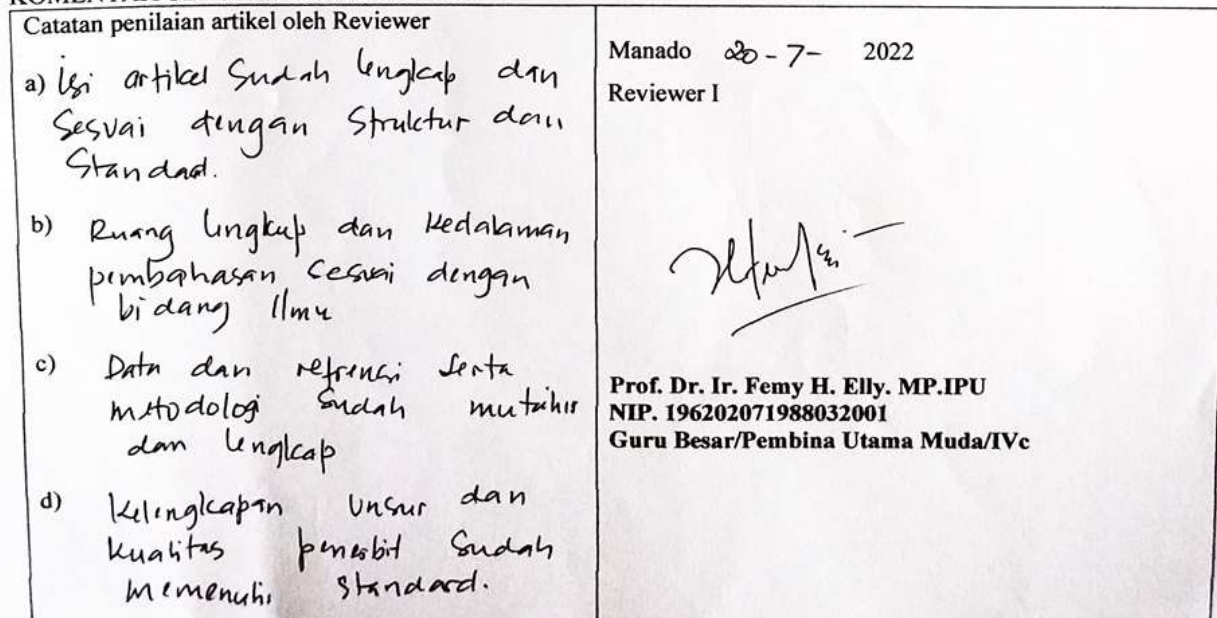 Catatan penilaian artikel oleh Reviewer
a) Isi artikel Sudah lengkap dan
Sesuai dengan Struktur dan
Standad.
b) Ruang lingkup dan Kedalaman
pembahasan Sesuai dengan
bidang Ilmu
c) Data dan refrensi Serta
metodologi Sudah mutahir
dan lengkap
d) Kelengkapan Unsur dan
Kualitas penerbit Sudah
memenuhi standard.
Manado 20 - 7 - 2022
Reviewer I
Prof. Dr. Ir. Femy H. Elly. MP.IPU
NIP. 196202071988032001
Guru Besar/Pembina Utama Muda/IVc